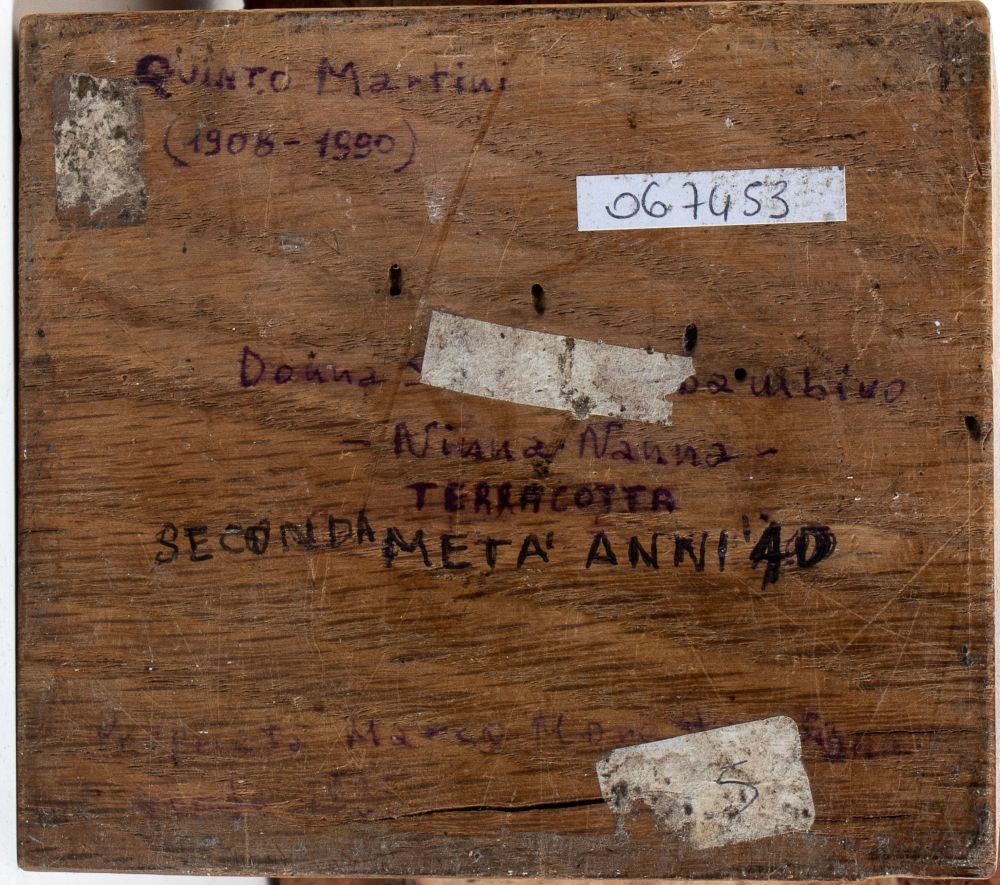 QUINTO Martini
(1908-1990)
067453
Donna bambino
- Ninna Nanna -
TERRACOTTA
SECONDA META' ANNI '40
Marco
5